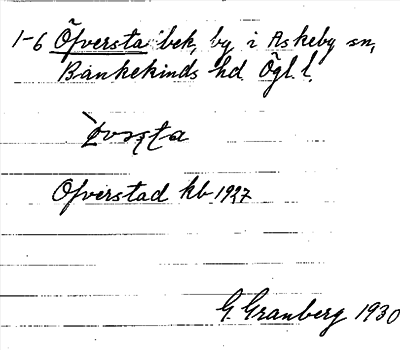 1-6 Öfversta bek, by i Askeby sn,
Bankekinds hd. Ögl.
Ofverstad kb 1927
G Granberg 1930